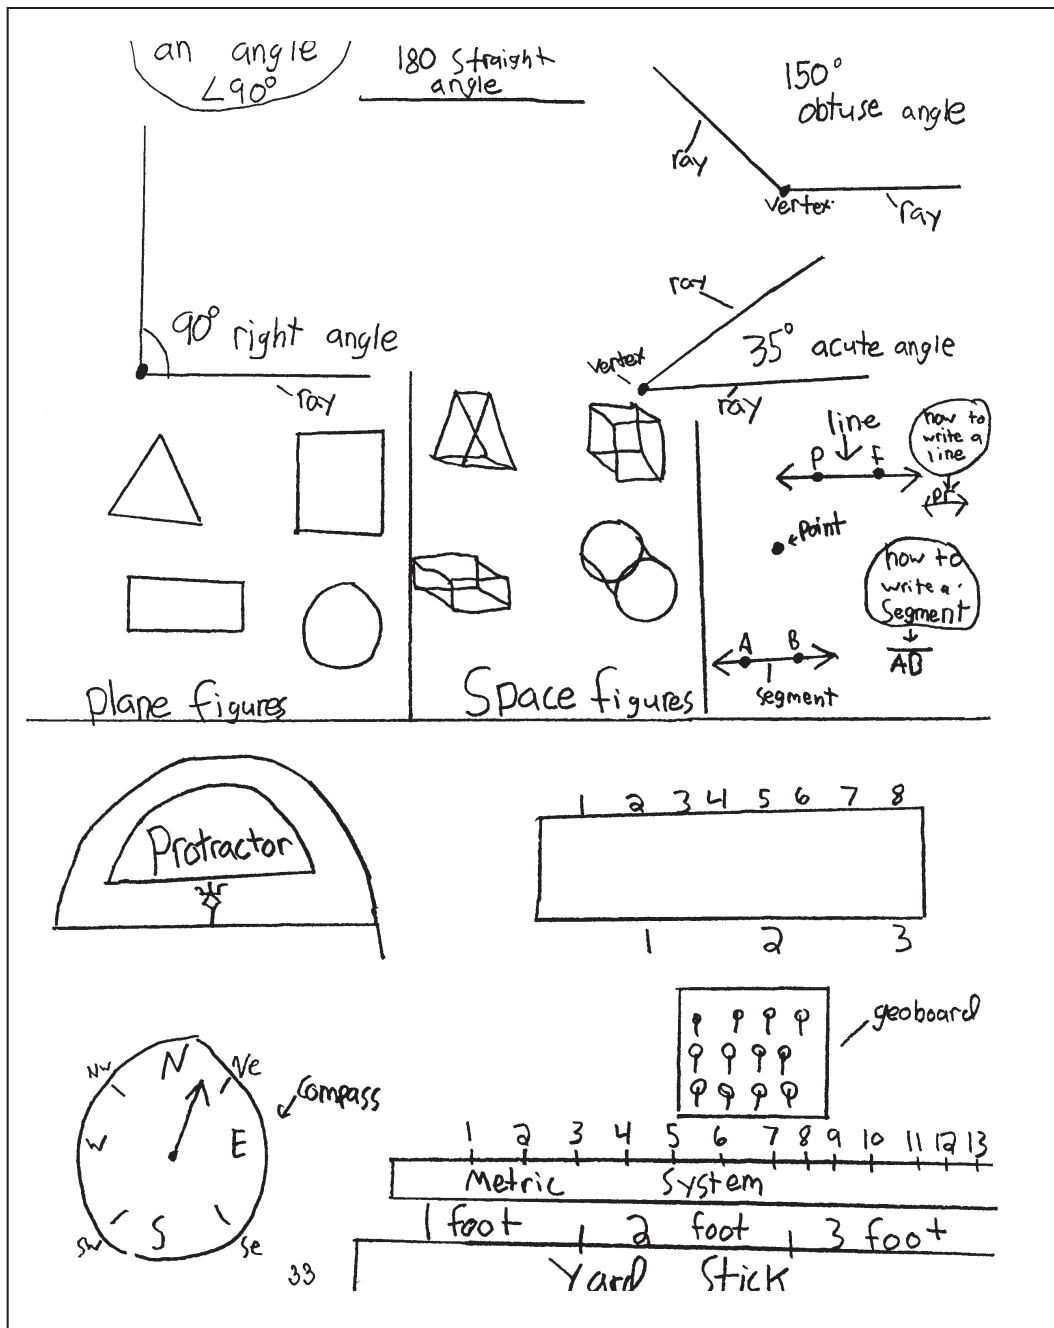 an angle
∠90°
180 straight
angle
150°
obtuse angle
ray
vertex
ray
90° right angle
ray
ray
vertex
35° acute angle
ray
line
P F
how to
write a
line
PF
Point
how to
write a
Segment
AB
A B
segment
Plane figures
Space figures
Protractor
1 2 3 4 5 6 7 8
1 2 3
geoboard
N
Nw Ne
W E
S
Sw Se
compass
1 2 3 4 5 6 7 8 9 10 11 12 13
Metric System
1 foot 2 foot 3 foot
Yard Stick
33